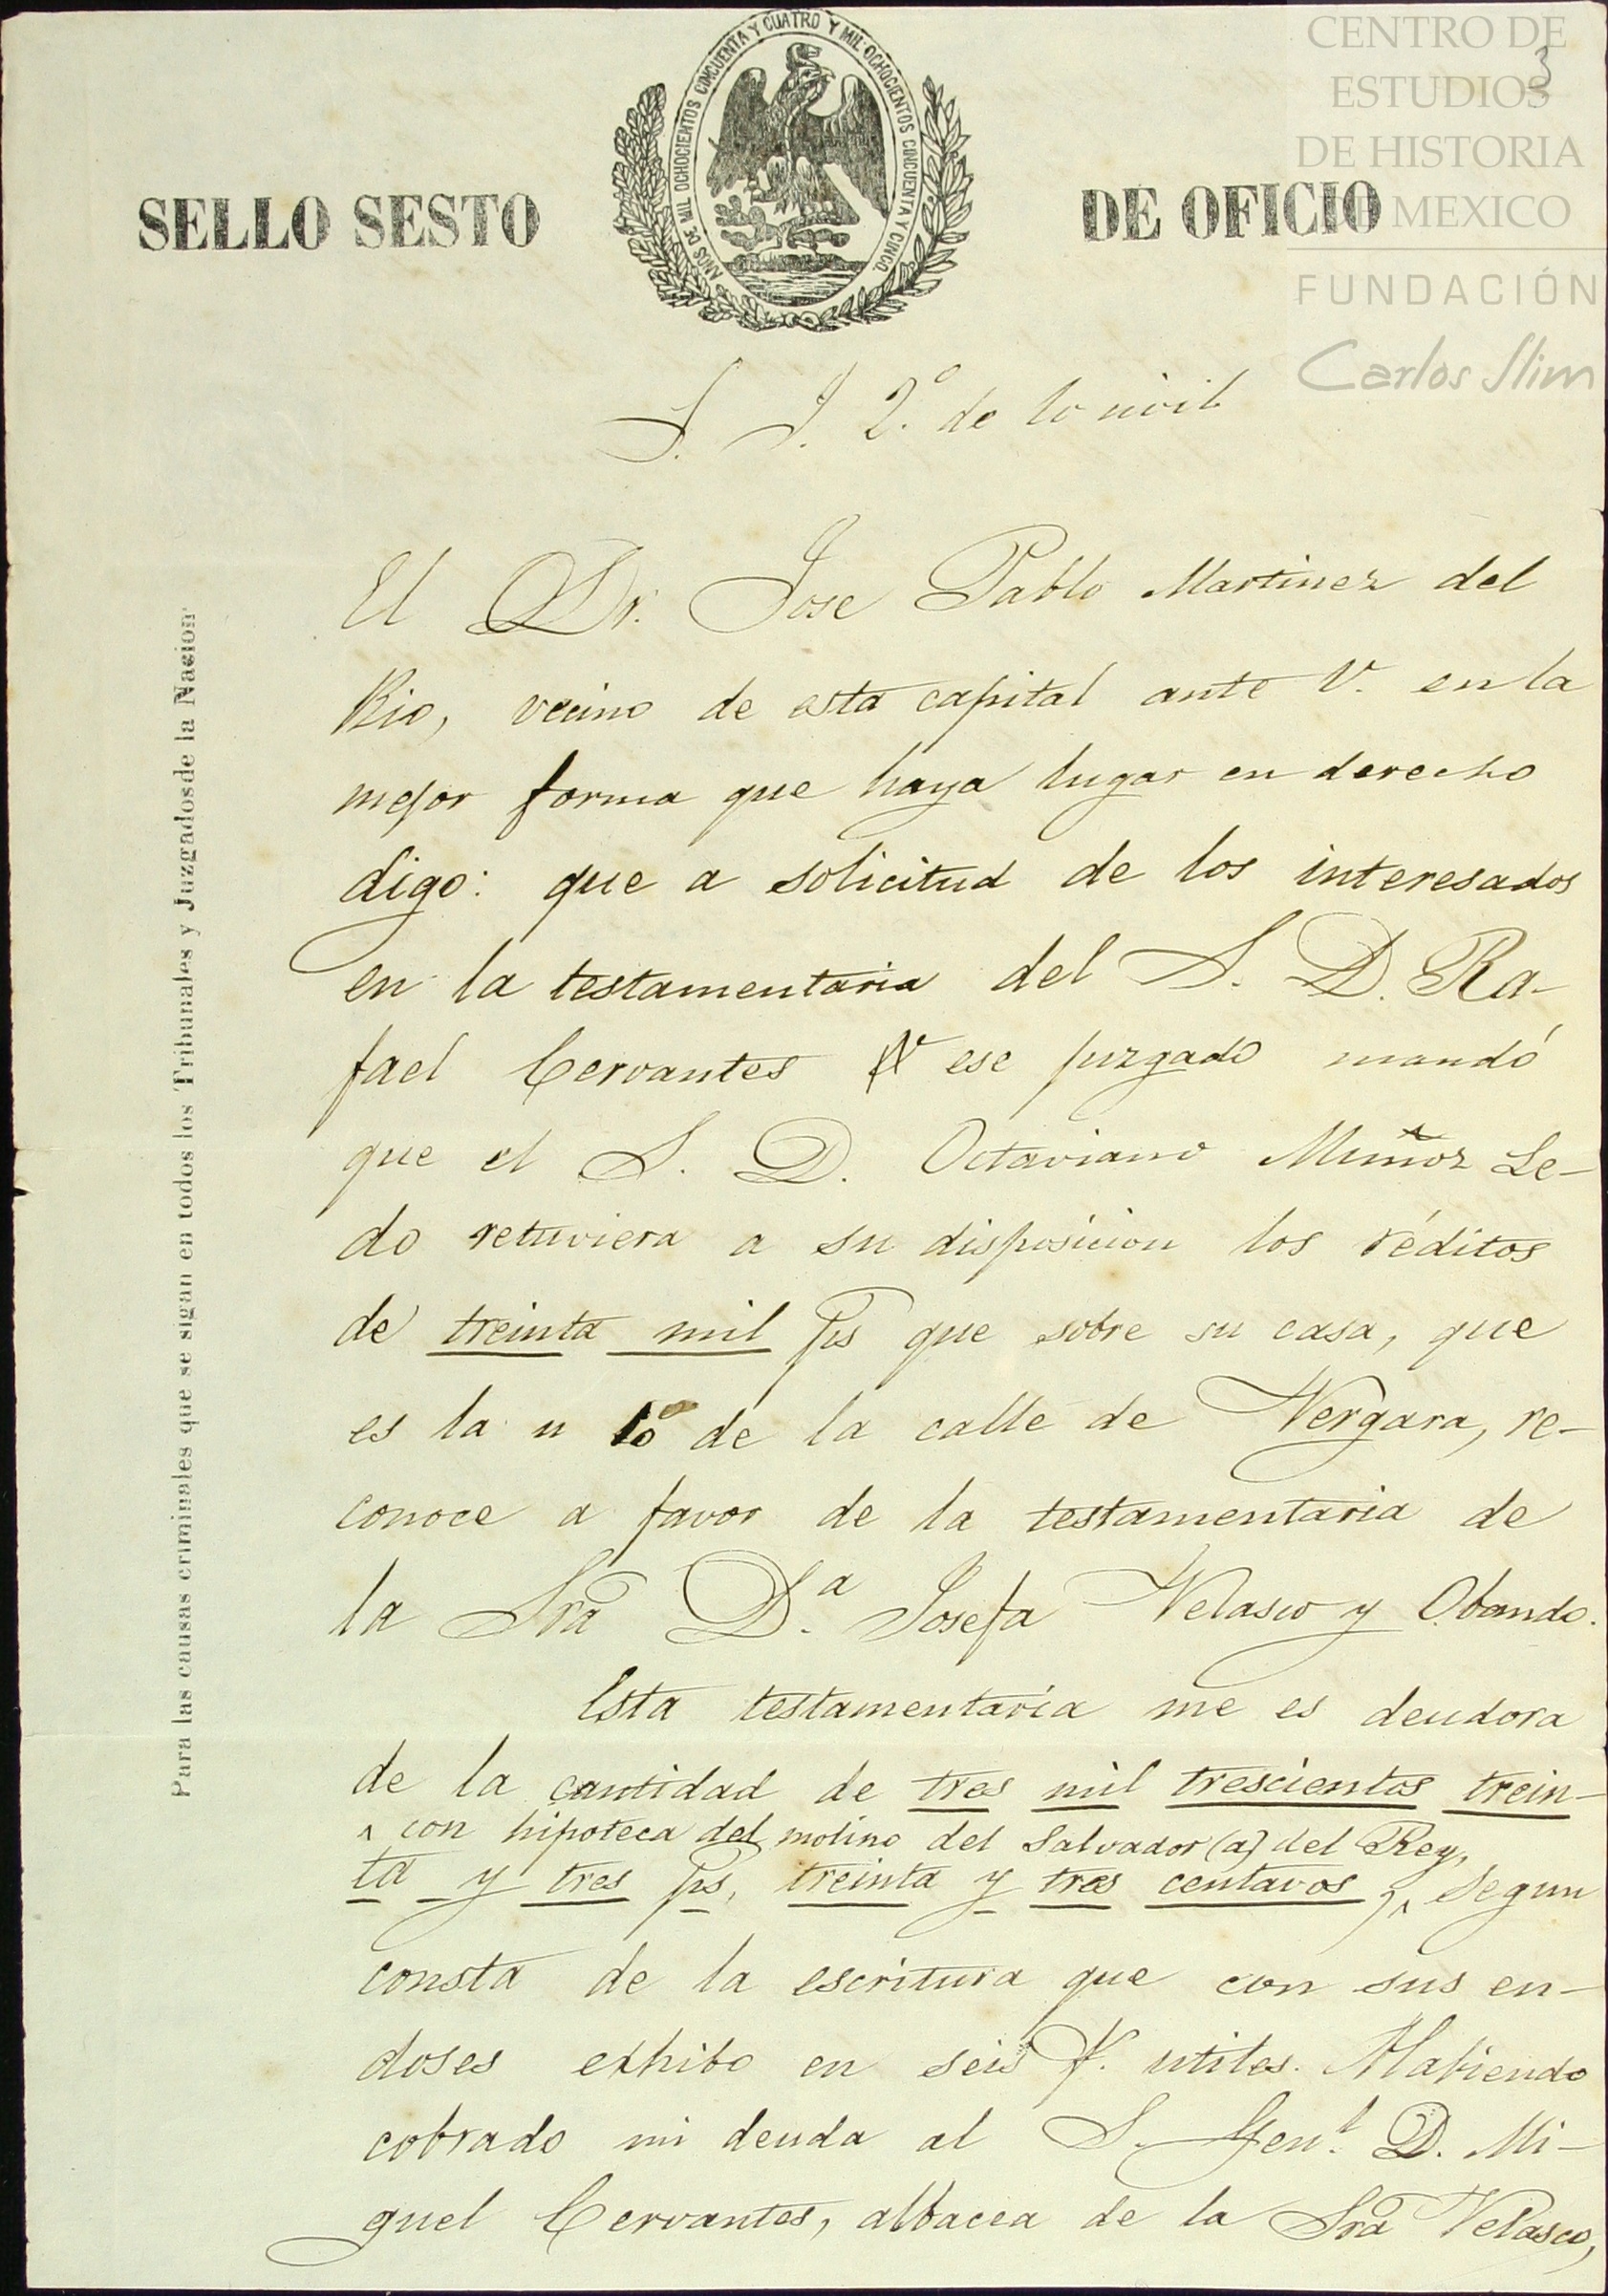 CENTRO DE
ESTUDIOS
DE HISTORIA
DE MEXICO
FUNDACIÓN
Carlos Slim
3
AÑOS DE MIL OCHOCIENTOS CINCUENTA Y CUATRO Y MIL OCHOCIENTOS CINCUENTA Y CINCO
SELLO SESTO DE OFICIO
Para las causas criminales que se sigan en todos los Tribunales y Juzgadosde la Nacion
S. J. 2.º de lo civil
El Dr. Jose Pablo Martinez del
Rio, vecino de esta capital ante V. en la
mejor forma que haya lugar en derecho
digo: que a solicitud de los interesados
en la testamentaria del S. D. Ra-
fael Cervantes ese juzgado mandó
que el S. D. Octaviano Muñoz Le-
do retuviera a su disposicion los réditos
de treinta mil ps que sobre su casa, que
es la n 10 de la calle de Vergara, re-
conoce a favor de la testamentaria de
la Sra D.ª Josefa Velasco y Obando.
Esta testamentaría me es deudora
de la cantidad de tres mil trescientos trein-
^ con hipoteca del molino del Salvador (a) del Rey,
ta y tres ps, treinta y tres centavos,^ segun
consta de la escritura que con sus en-
doses exhibo en seis f. utiles. Habiendo
cobrado mi deuda al S. Gen.l D. Mi-
guel Cervantes, albacea de la Sra Velasco,